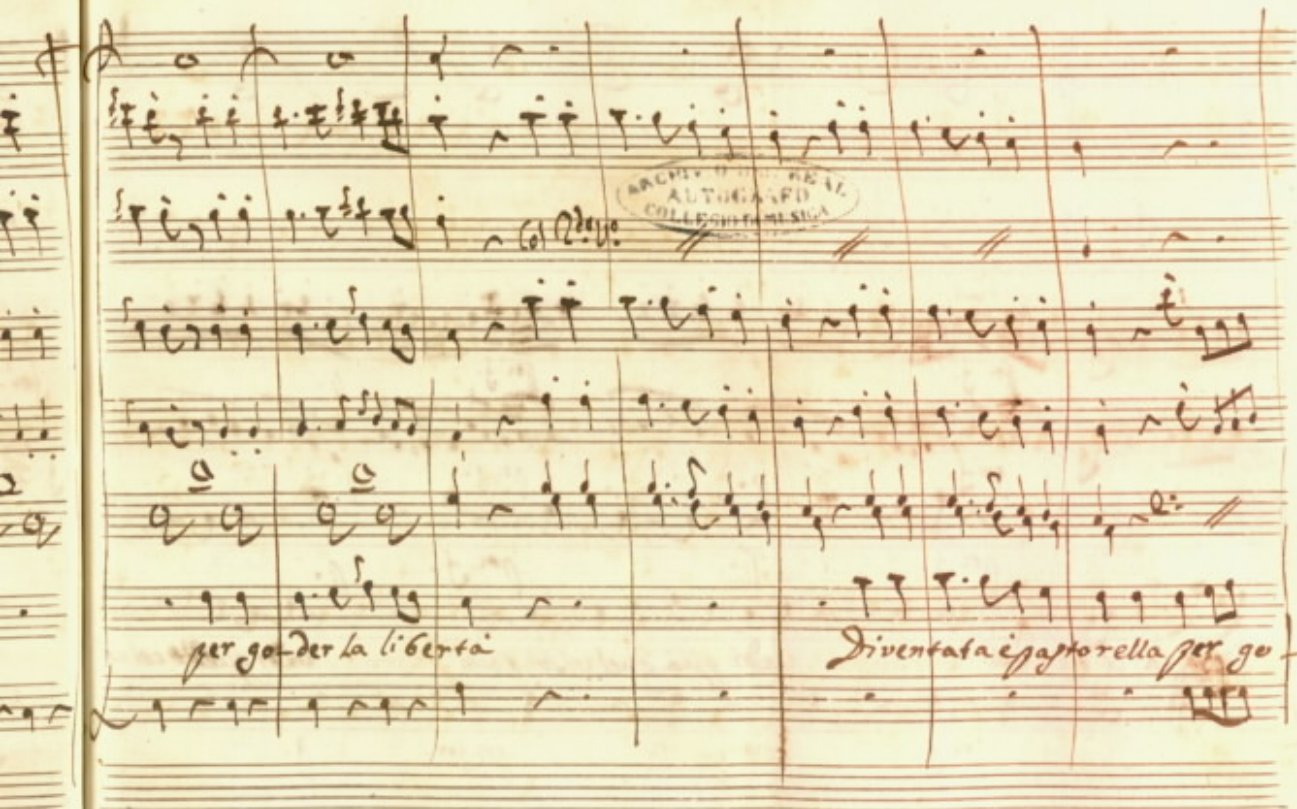 ARCHIVIO DEL REAL
AUTOGRAFO
COLLEGIO DI MUSICA
per go-der la libertà
Diventata è pastorella per go-